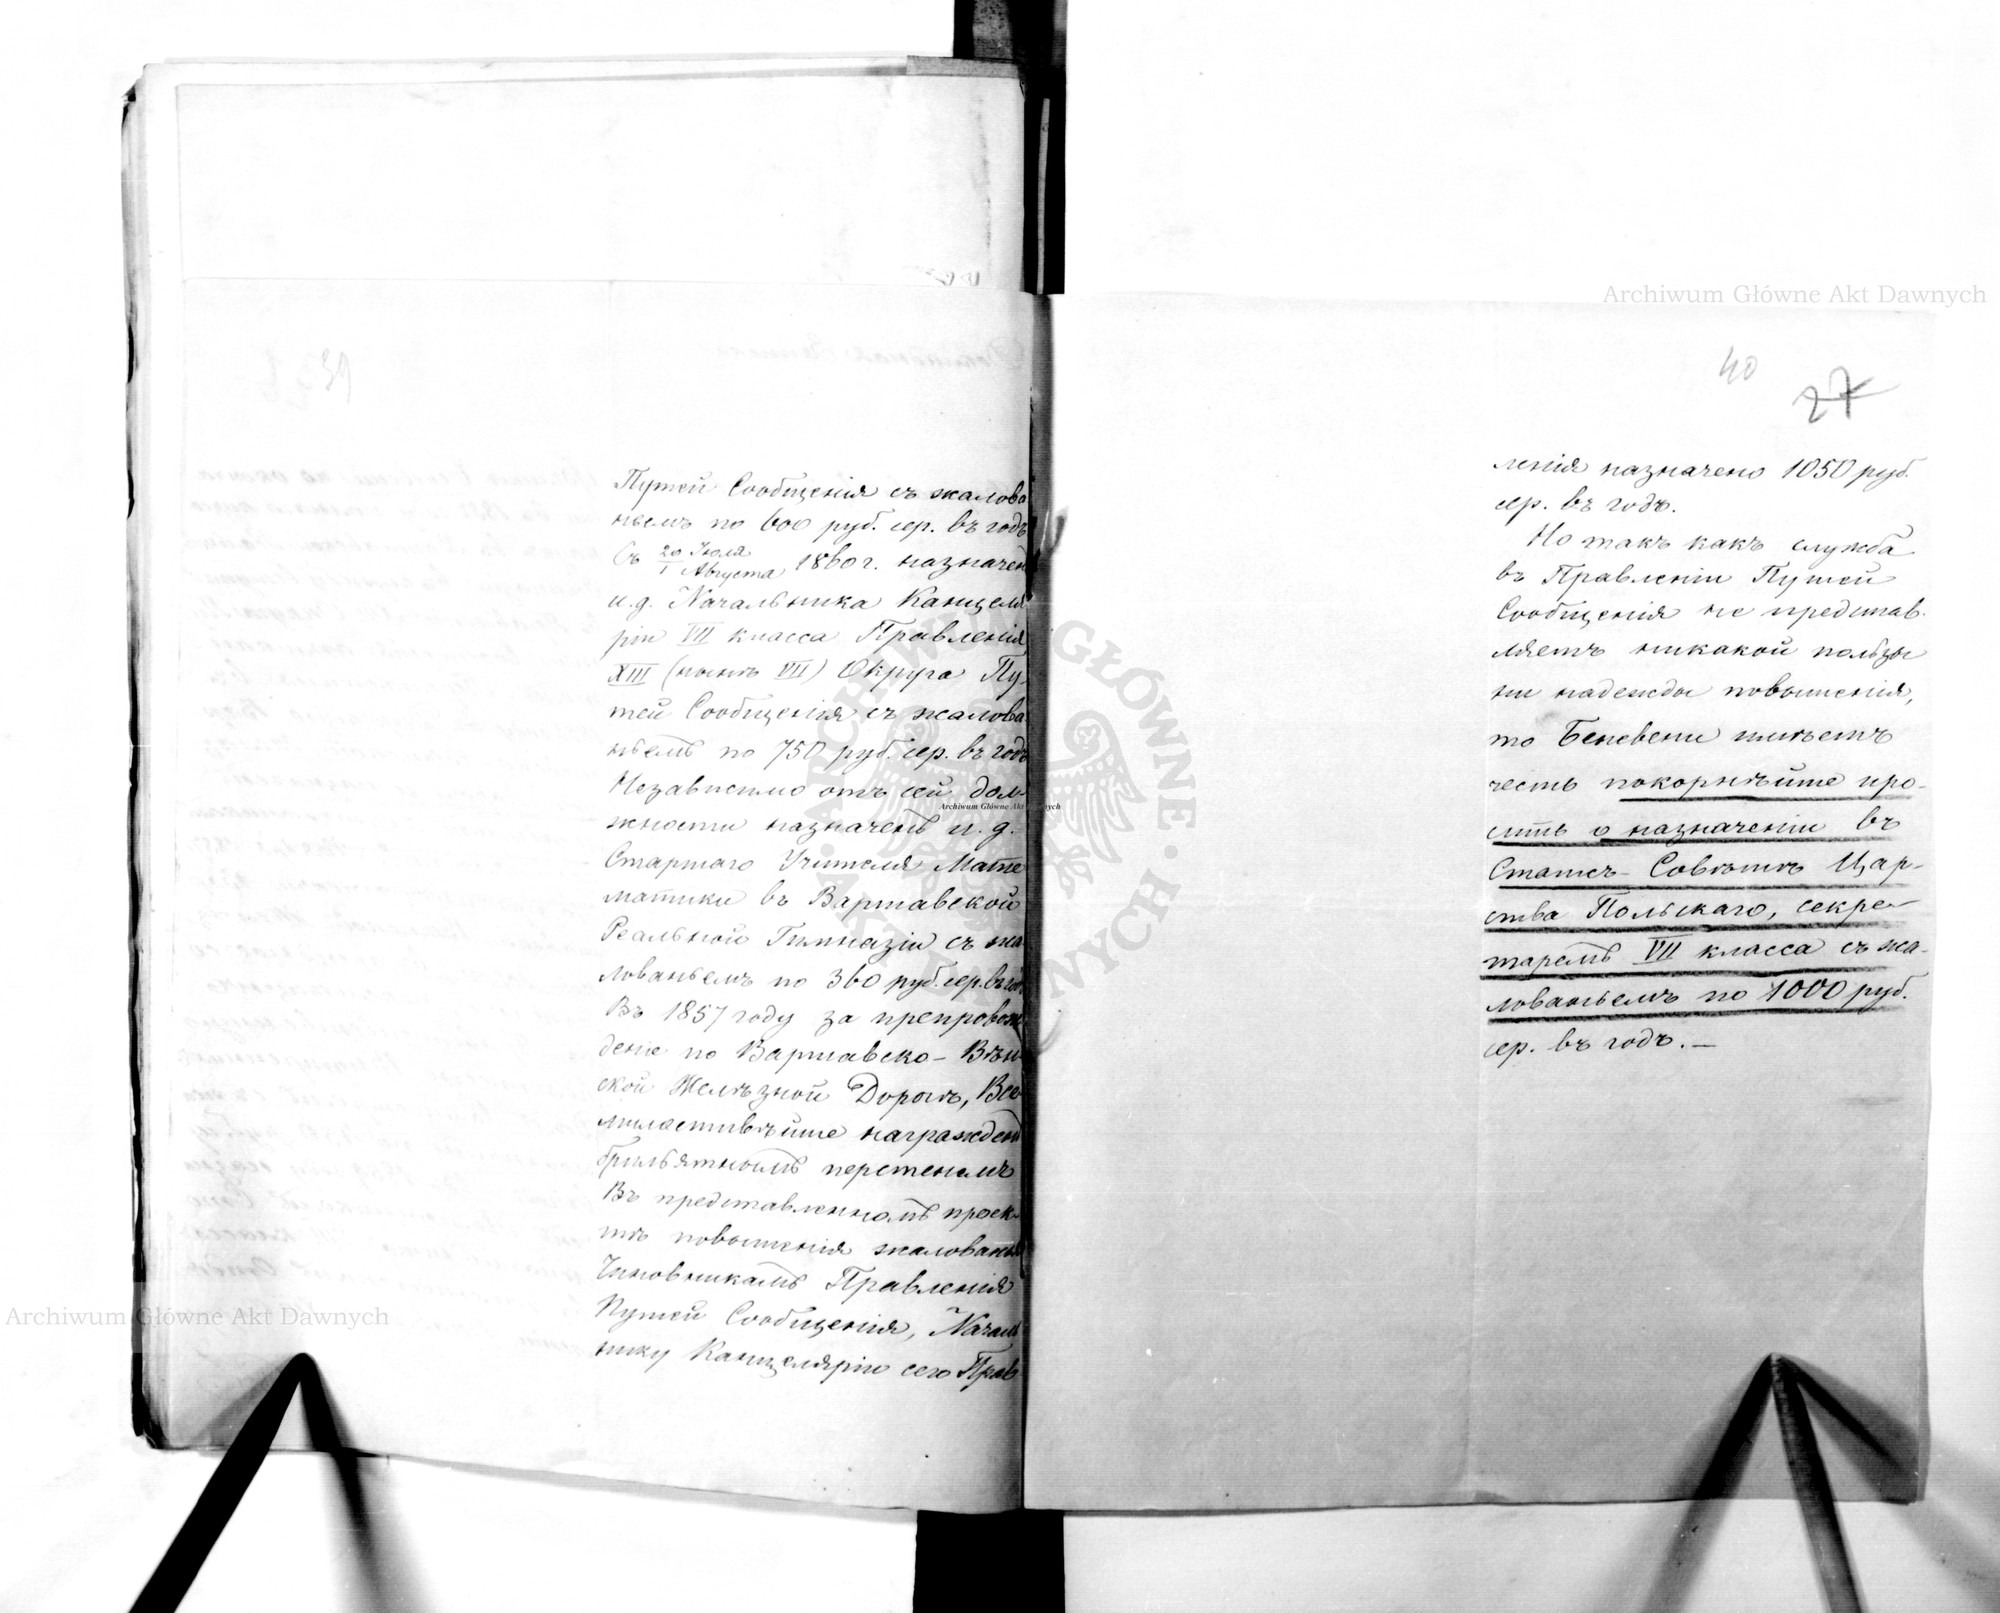 Путей Сообщенія съ жалова
ньемъ по 600 руб. сер. въ годъ
Съ 20 Іюля / 1 Августа 1860 г. назначен
и. д. Начальника Канцеля
ріи VII класса Правленія
XIII (нынѣ VII) Округа Пу-
тей Сообщенія съ жалова
ньемъ по 750 руб. сер. въ годъ
Независимо отъ сей дол-
жности назначенъ и. д.
Старшаго Учителя Мате
матики въ Варшавской
Реальной Гимназіи съ жа
лованьемъ по 360 руб. сер. въ год
Въ 1857 году за препровож
деніе по Варшавско-Вѣн-
ской Желѣзной Дорогѣ, Все
милостивѣйше награжденъ
брильятнымъ перстенемъ
Въ представленномъ проек-
тѣ повышенія жалованья
Чиновникамъ Правленія
Путей Сообщенія, Началь
нику Канцеляріи сего Прав
40
27
ленія назначено 1050 руб.
сер. въ годъ.
Но такъ какъ служба
въ Правленіи Путей
Сообщенія не представ-
ляетъ никакой пользы
ни надежды повышенія,
то Беневени имѣетъ
честь покорнѣйше про-
сить о назначеніи въ
Статсъ-Совѣтѣ Цар-
ства Польскаго, секре-
таремъ VII класса съ жа-
лованьемъ по 1000 руб.
сер. въ годъ. —
39
Archiwum Główne Akt Dawnych
Archiwum Główne Akt Dawnych
Archiwum Główne Akt Dawnych
ARCHIWUM GŁÓWNE AKT DAWNYCH